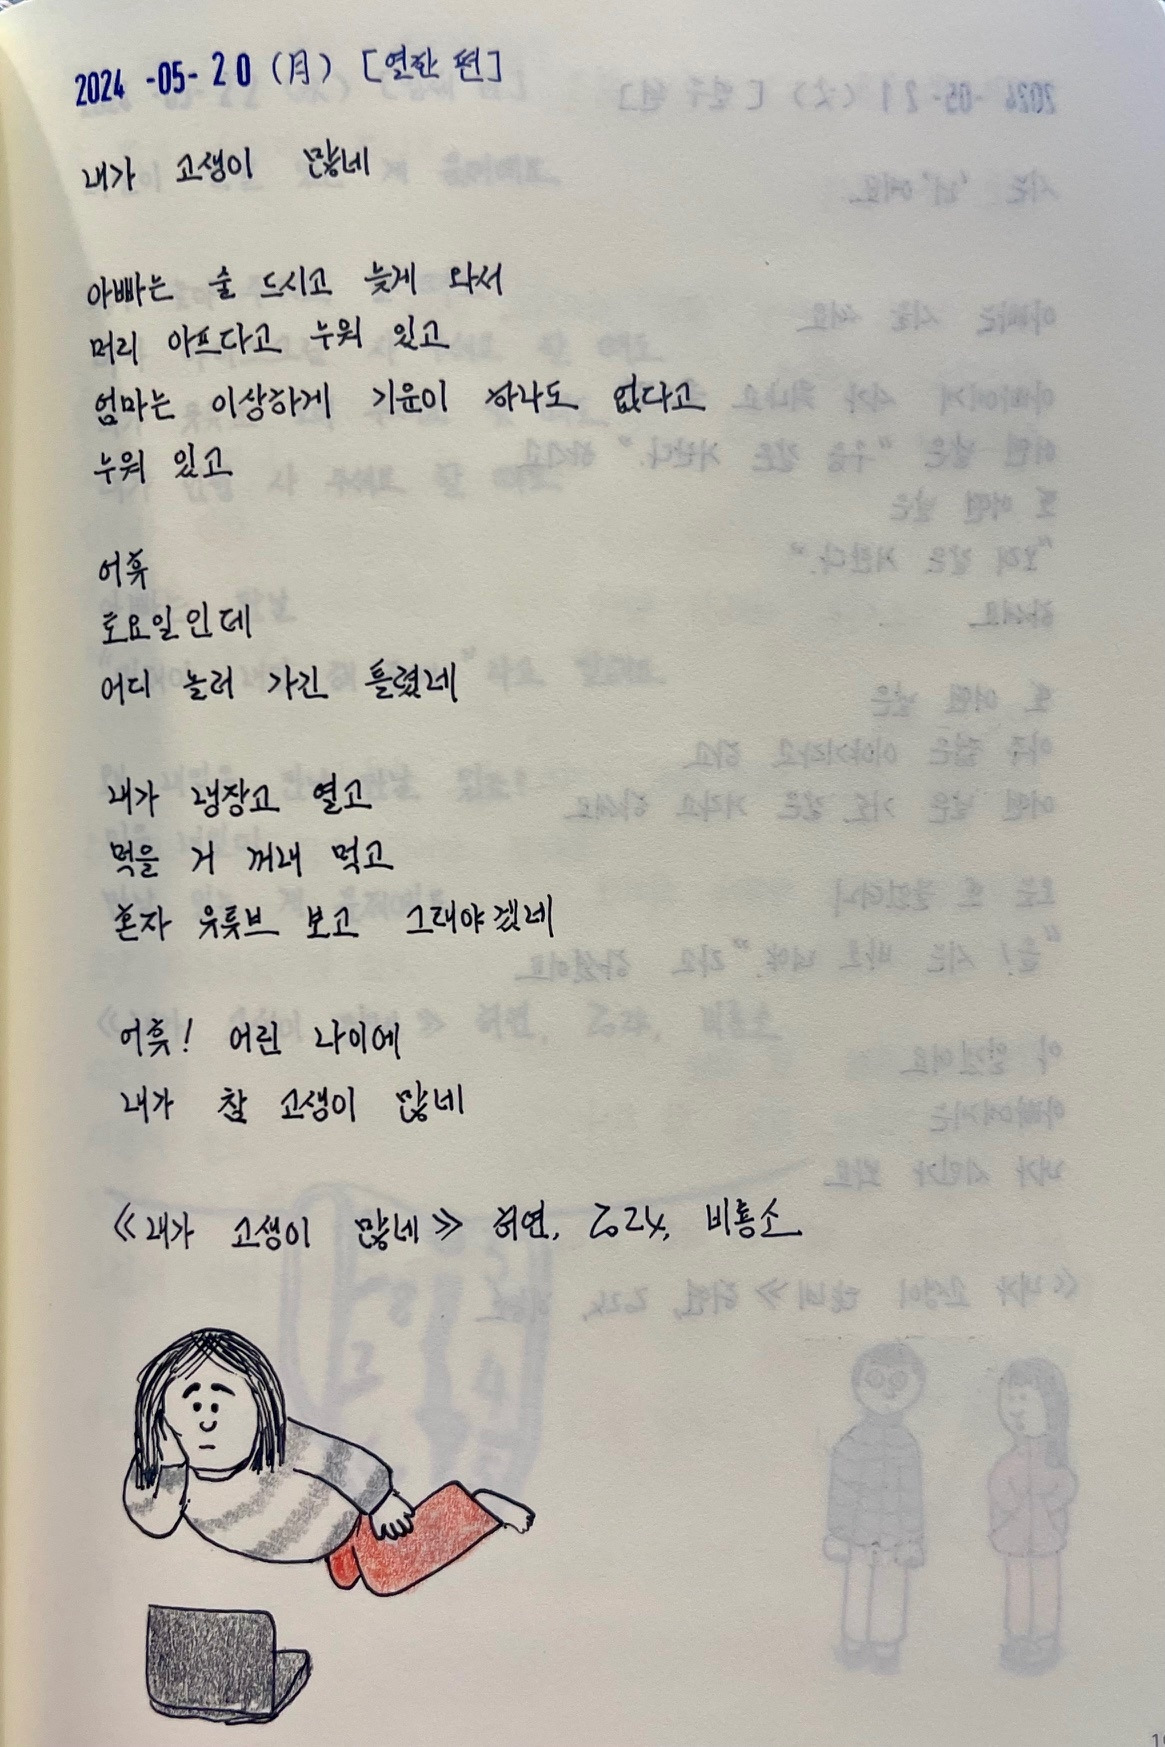 2024-05-20 (月) [열한 편]
내가 고생이 많네
아빠는 술 드시고 늦게 와서
머리 아프다고 누워 있고
엄마는 이상하게 기운이 하나도 없다고
누워 있고
어휴
토요일인데
어디 놀러 가긴 틀렸네
내가 냉장고 열고
먹을 거 꺼내 먹고
혼자 유튜브 보고 그래야겠네
어휴! 어린 나이에
내가 참 고생이 많네
《내가 고생이 많네》 허연, 2024, 비룡소